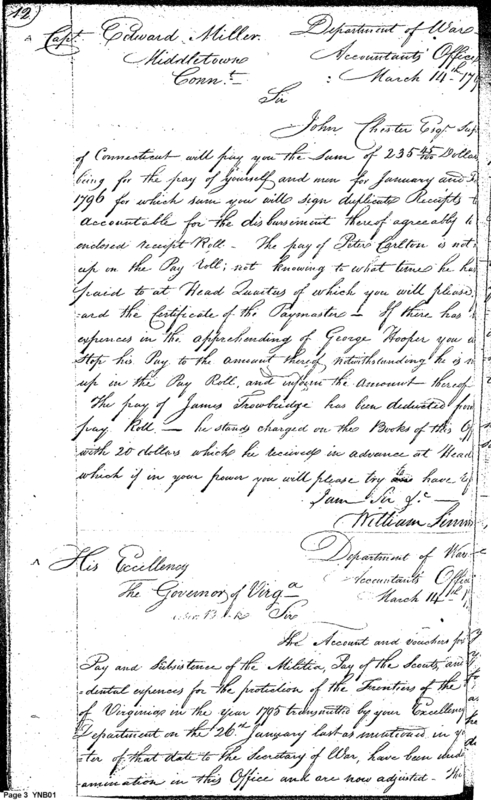 12)
Capt Edward Miller. Department of War
Middletown Accountants Office
Connt. March 14th 179
Sir
John Chester Esqr Sup
of Connecticut will pay you the sum of 235 45/100 Dollar
being for the pay of yourself and men for January and F
1796 for which sum you will sign duplicate Receipts
accountable for the disbursement thereof agreeably to
enclosed receipt Roll - The pay of Peter Carlton is not
up on the Pay Roll; not knowing to what time he ha
paid to at Head Quarters of which you will please
and the Certificate of the Paymaster - If there has
expences in the apprehending of George Hooper you
Stop his Pay to the amount thereof notwithstanding he is n
up in the Pay Roll, and inform the amount thereof
The pay of James Trowbridge has been deducted from
pay Roll - he stands charged on the Books of this Off
with 20 dollars which he received in advance at Head
which if in your power you will please try to have
I am Sir &c -
William Simm
His Excellency Department of War
The Governor of Virga Accountants Office
Sir March 14th 1
The Account and vouchers for
Pay and Subsistence of the Militia, Pay of the Scouts, an
dental expences for the protection of the Frontiers of the
of Virginia in the year 1795 transmitted by your Excellency
Department on the 26th January last as mentioned in yo
ter of that date to the Secretary of War, have been und
amination in this Office and are now adjusted. The
Page 3 YNB01